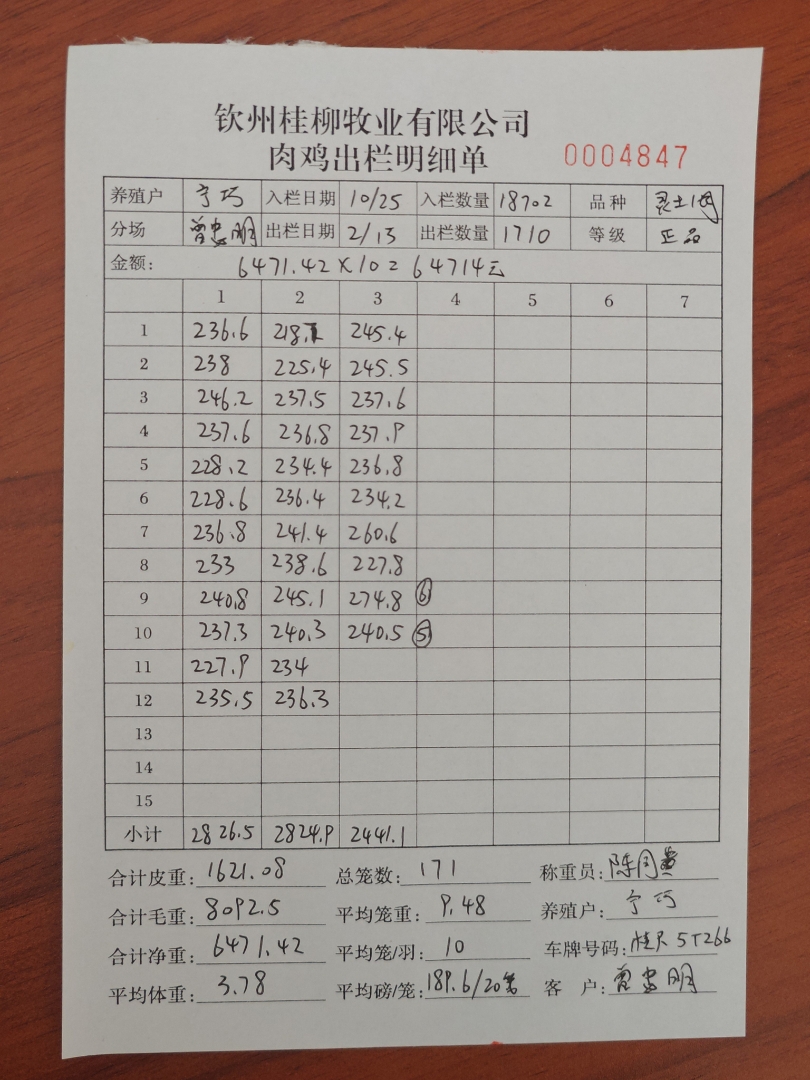 钦州桂柳牧业有限公司
肉鸡出栏明细单 0004847
养殖户 宁巧 入栏日期 10/25 入栏数量 18702 品种
分场 曾忠明 出栏日期 2/13 出栏数量 1710 等级 正品
金额: 6471.42×10=64714元
1 2 3 4 5 6 7
1 236.6 218.1 245.4
2 238 225.4 245.5
3 246.2 237.5 237.6
4 237.6 236.8 237.9
5 228.2 234.4 236.8
6 228.6 236.4 234.2
7 236.8 241.4 260.6
8 233 238.6 227.8
9 240.8 245.1 274.8 ⑥
10 237.3 240.3 240.5 ⑤
11 227.9 234
12 235.5 236.3
13
14
15
小计 2826.5 2824.9 2441.1
合计皮重: 1621.08 总笼数: 171 称重员: 陈同
合计毛重: 8092.5 平均笼重: 9.48 养殖户: 宁巧
合计净重: 6471.42 平均笼/羽: 10 车牌号码: 桂R 5T266
平均体重: 3.78 平均磅/笼: 189.6/20 客户: 曾忠明